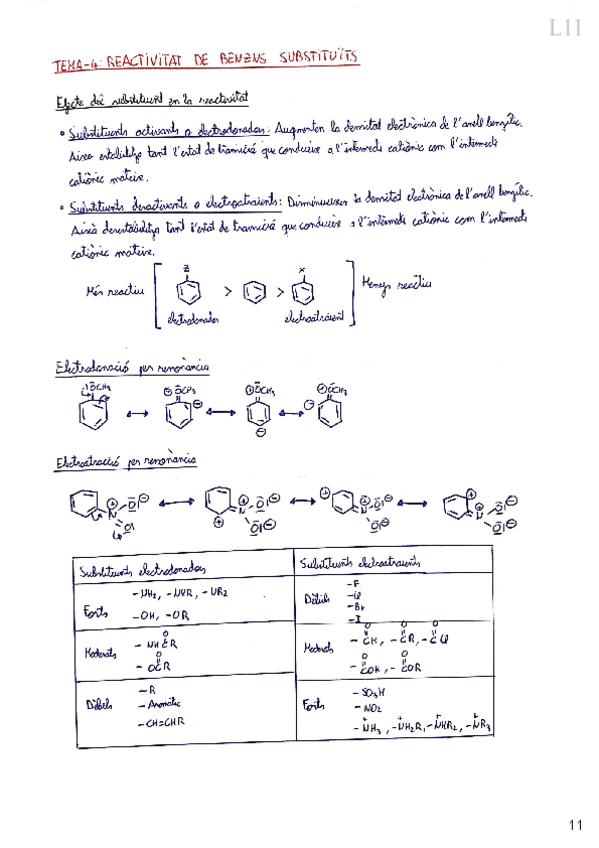 L11
TEMA-4: REACTIVITAT DE BENZENS SUBSTITUÏTS
Efecte del substituent en la reactivitat
• Substituents activants o electrodonadors: Augmenten la densitat electrònica de l'anell benzílic.
Això estabilitza tant l'estat de transició que condueix a l'intermedi catiònic com l'intermedi
catiònic mateix.
• Substituents desactivants o electroatraients: Disminueixen la densitat electrònica de l'anell benzílic.
Això desestabilitza tant l'estat de transició que condueix a l'intermedi catiònic com l'intermedi
catiònic mateix.
Z X
Més reactiu > > Menys reactiu
electrodonador electroatraient
Electrodonació per resonància
OCH3 OCH3 OCH3 OCH3
Electroatracció per resonància
Substituents electrodonadors Substituents electroatraients
Forts -NH2, -NHR, -NR2
-OH, -OR
Dèbils -F
-Cl
-Br
-I
Moderats -NHCR
-OCR
Moderats -CH, -CR, -CCl
-COH, -COR
Dèbils -R
-Aromàtic
-CH=CHR
Forts -SO3H
-NO2
-NH3, -NH2R, -NHR2, -NR3
11